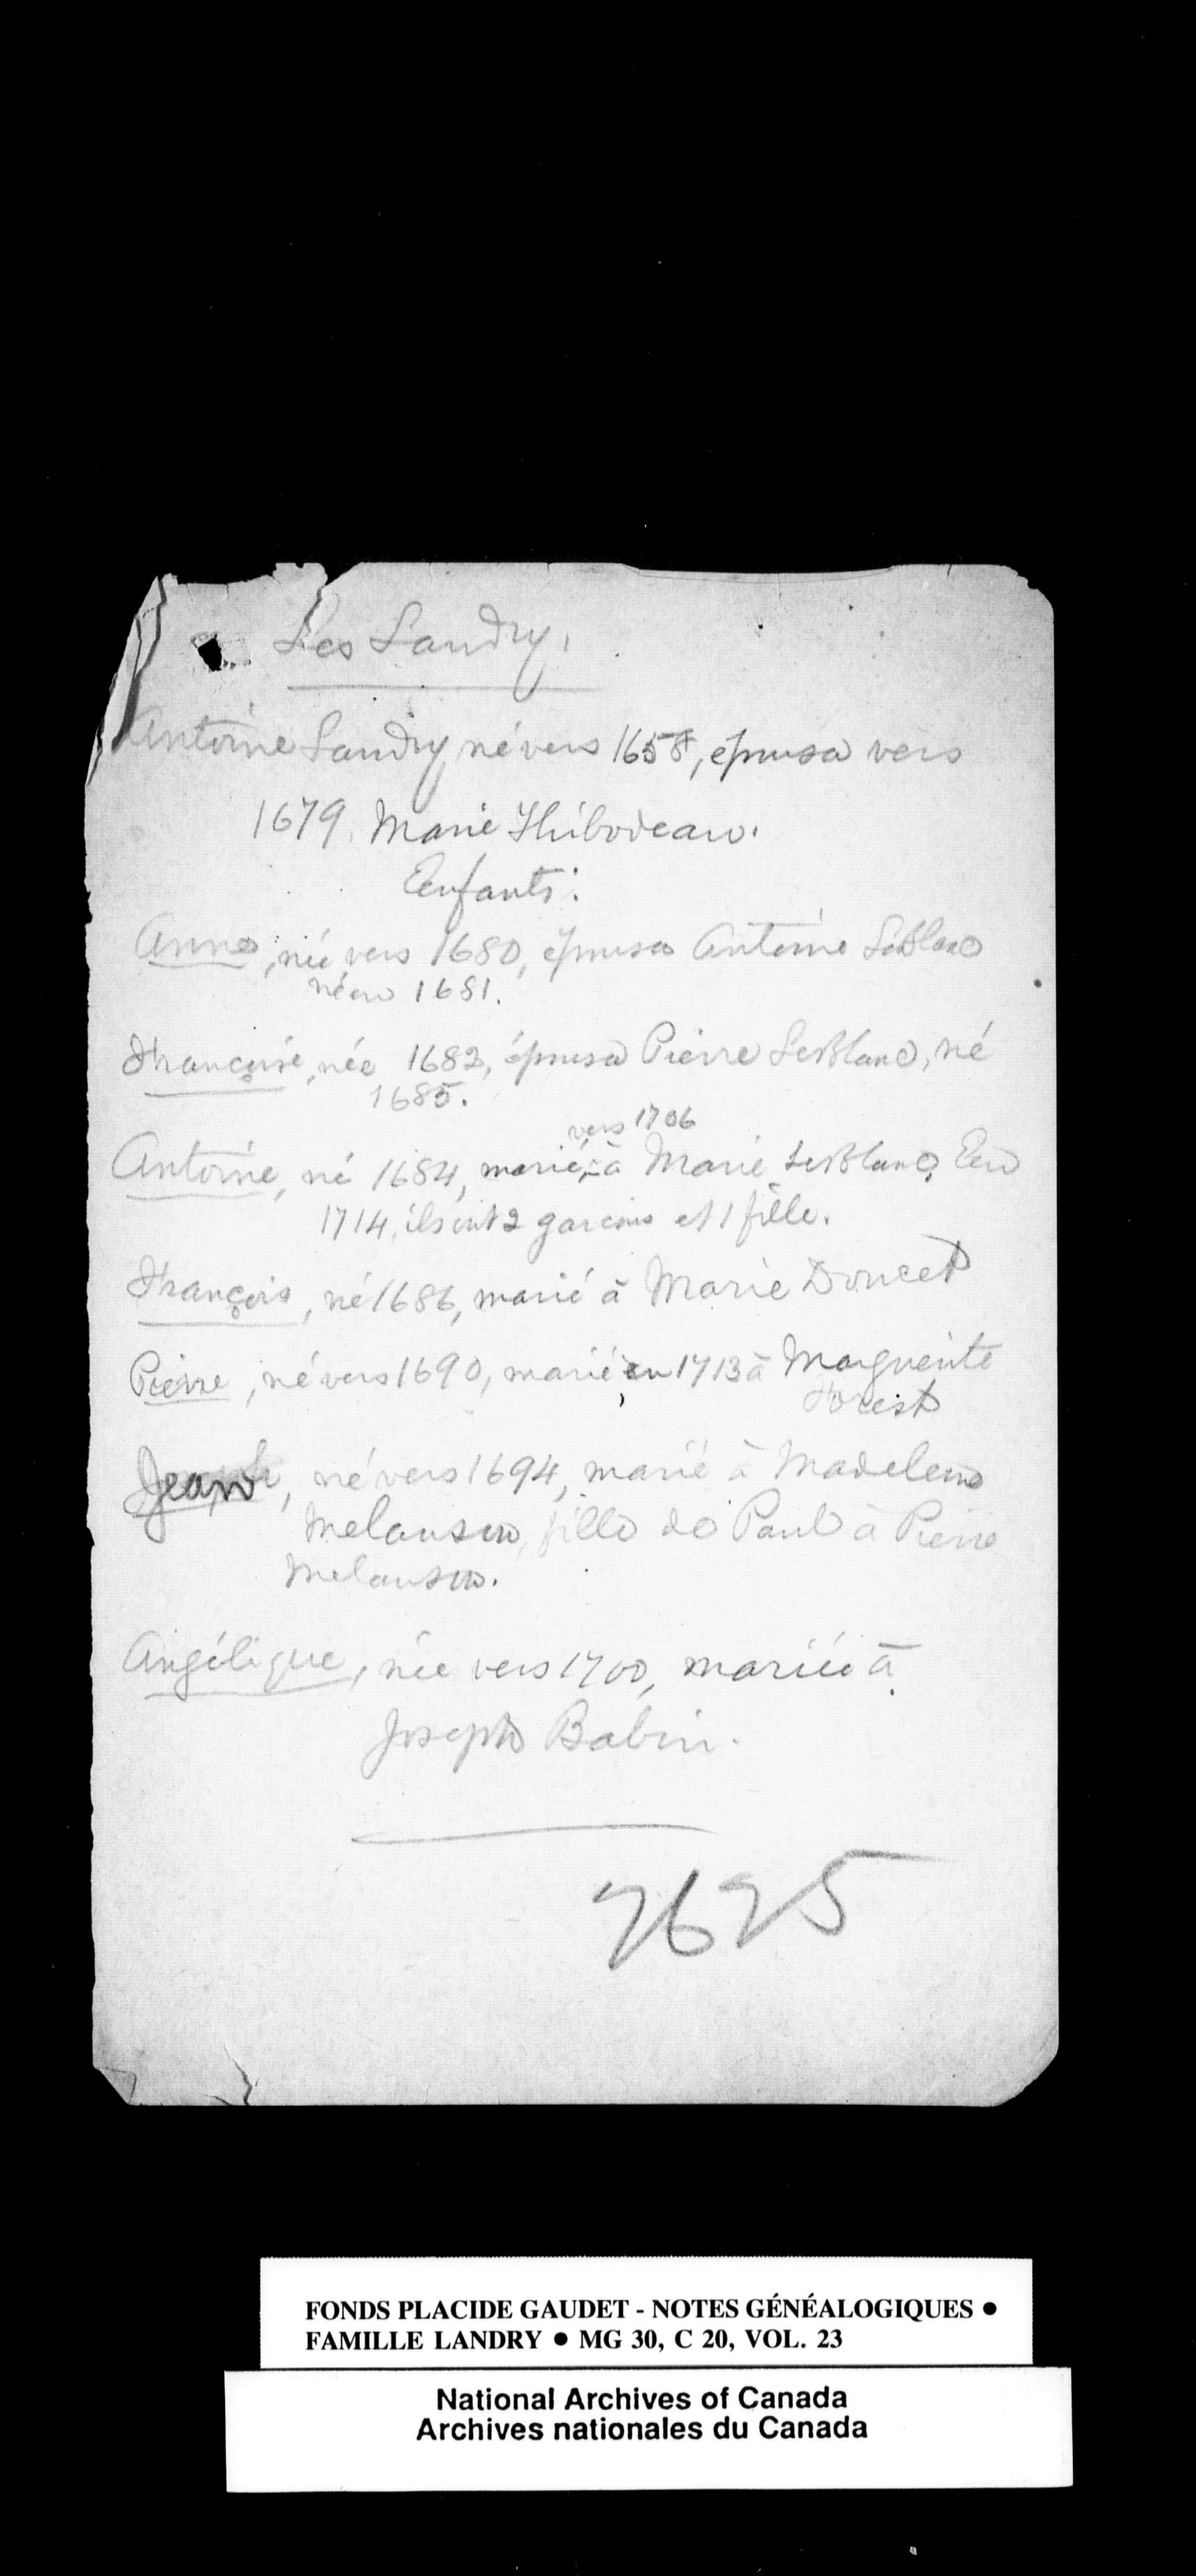 Les Landry,
Antoine Landry, né vers 1658, épousa vers
1679, Marie Thibodeau.
Enfants:
Anne, née vers 1680, épousa Antoine LeBlanc
né en 1681.
Françoise, née 1682, épousa Pierre LeBlanc, né
1685.
vers 1706
Antoine, né 1684, marié, à Marie LeBlanc. En
1714, ils ont 2 garcons et 1 fille.
François, né 1686, marié à Marie Doucet
Pierre, né vers 1690, marié en 1713 à Marguerite
Forest
Jean, né vers 1694, marié à Madeleine
Melanson, fille de Paul à Pierre
Melanson.
Angélique, née vers 1700, mariée à
Joseph Babin.
2625
FONDS PLACIDE GAUDET - NOTES GÉNÉALOGIQUES ●
FAMILLE LANDRY ● MG 30, C 20, VOL. 23
National Archives of Canada
Archives nationales du Canada